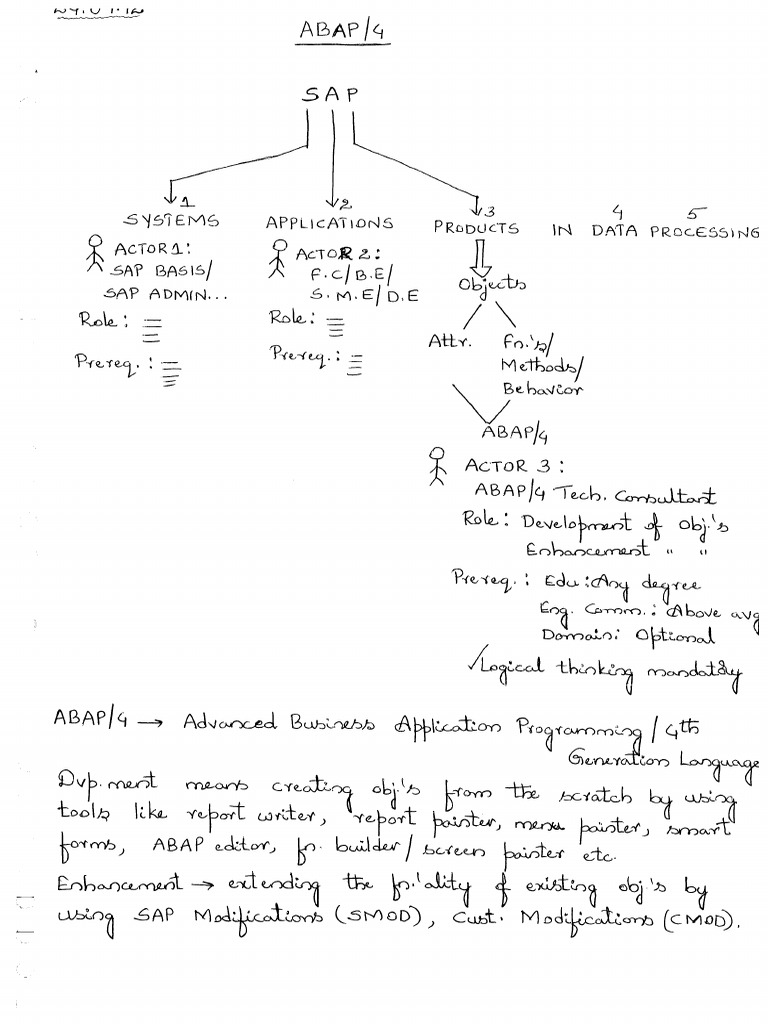 ABAP/4
SAP
1 2 3 4 5
SYSTEMS APPLICATIONS PRODUCTS IN DATA PROCESSING
ACTOR 1:
SAP BASIS/
SAP ADMIN...
Role:
Prereq.:
ACTOR 2:
F.C/B.E/
S.M.E/D.E
Role:
Prereq.:
Objects
Attr. Fn.'s/
Methods/
Behavior
ABAP/4
ACTOR 3:
ABAP/4 Tech. Consultant
Role: Development of Obj.'s
Enhancement " "
Prereq.: Edu: Any degree
Eng. Comm.: Above avg
Domain: Optional
✓Logical thinking mandatory
ABAP/4 → Advanced Business Application Programming / 4th
Generation Language
Dvp.ment means creating obj's from the scratch by using
tools like report writer, report painter, menu painter, smart
forms, ABAP editor, fn. builder/screen painter etc.
Enhancement → extending the fn.'ality of existing obj.'s by
using SAP Modifications (SMOD), Cust. Modifications (CMOD).